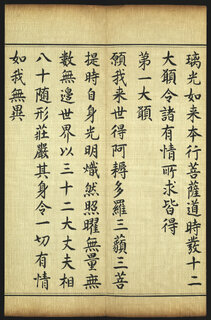 璃光如来本行菩薩道時發十二
大願令諸有情所求皆得
第一大願
願我来世得阿耨多羅三藐三菩
提時自身光明熾然照曜無量無
數無邊世界以三十二大丈夫相
八十随形莊嚴其身令一切有情
如我無異